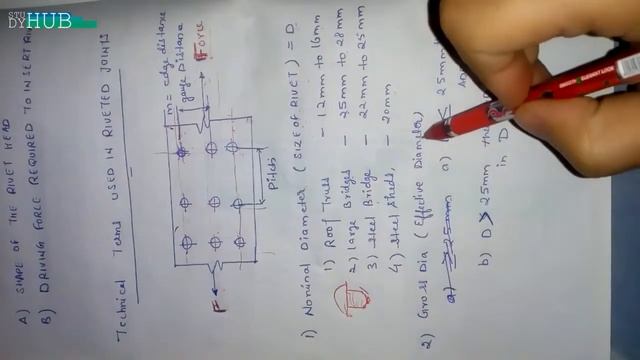 STUDY HUB
A) SHAPE OF THE RIVET HEAD
B) DRIVING FORCE REQUIRED TO INSERT
Technical Terms USED IN RIVETED JOINTS
m = edge distance
gauge Distance
Force
F
Pitch
1) Nominal Diameter (SIZE OF RIVET) = D
1) Roof Truss - 12mm to 16mm
2) large Bridges - 25mm to 28mm
3) steel Bridge - 22mm to 25mm
4) steel sheds, - 20mm
2) Gross Dia (Effective Diameter)
a) 25mm a) 25mm
b) D > 25mm the
in D